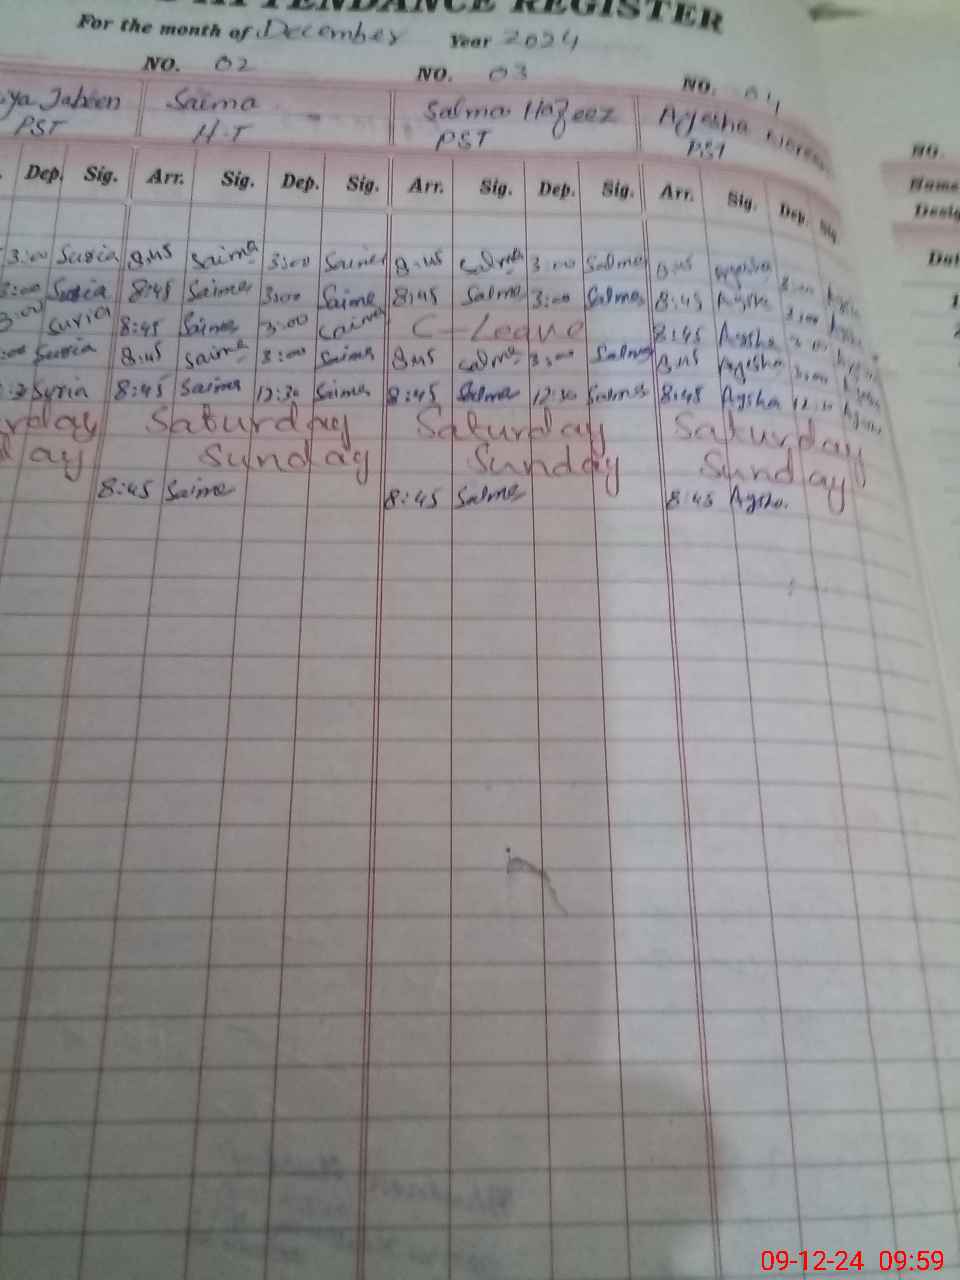 ATTENDANCE REGISTER
For the month of December Year 2024
NO. 02 NO. 03 NO. 04
ya Jabeen Saima Salma Hafeez Ayesha
PST H.T PST PST
Dep. Sig. Arr. Sig. Dep. Sig. Arr. Sig. Dep. Sig. Arr. Sig. Dep. Sig.
3:00 Suria 8:45 Saima 3:00 Saima 8:45 Salma 3:00 Salma 8:45 Aysha
3:00 Suria 8:45 Saima 3:00 Saima 8:45 Salma 3:00 Salma 8:45 Aysha 3:00
3:00 Suria 8:45 Saima 3:00 Saima C-Leave 8:45 Aysha 3:00
:00 Suria 8:45 Saima 3:00 Saima 8:45 Salma 3:00 Salma 8:45 Aysha 3:00
Syria 8:45 Saima 12:30 Saima 8:45 Salma 12:30 Salma 8:45 Aysha 12:30
rday Saturday Saturday Saturday
ay Sunday Sunday Sunday
8:45 Saima 8:45 Salma 8:45 Aysha.
NO.
Name
Desig
Dat
1
09-12-24 09:59